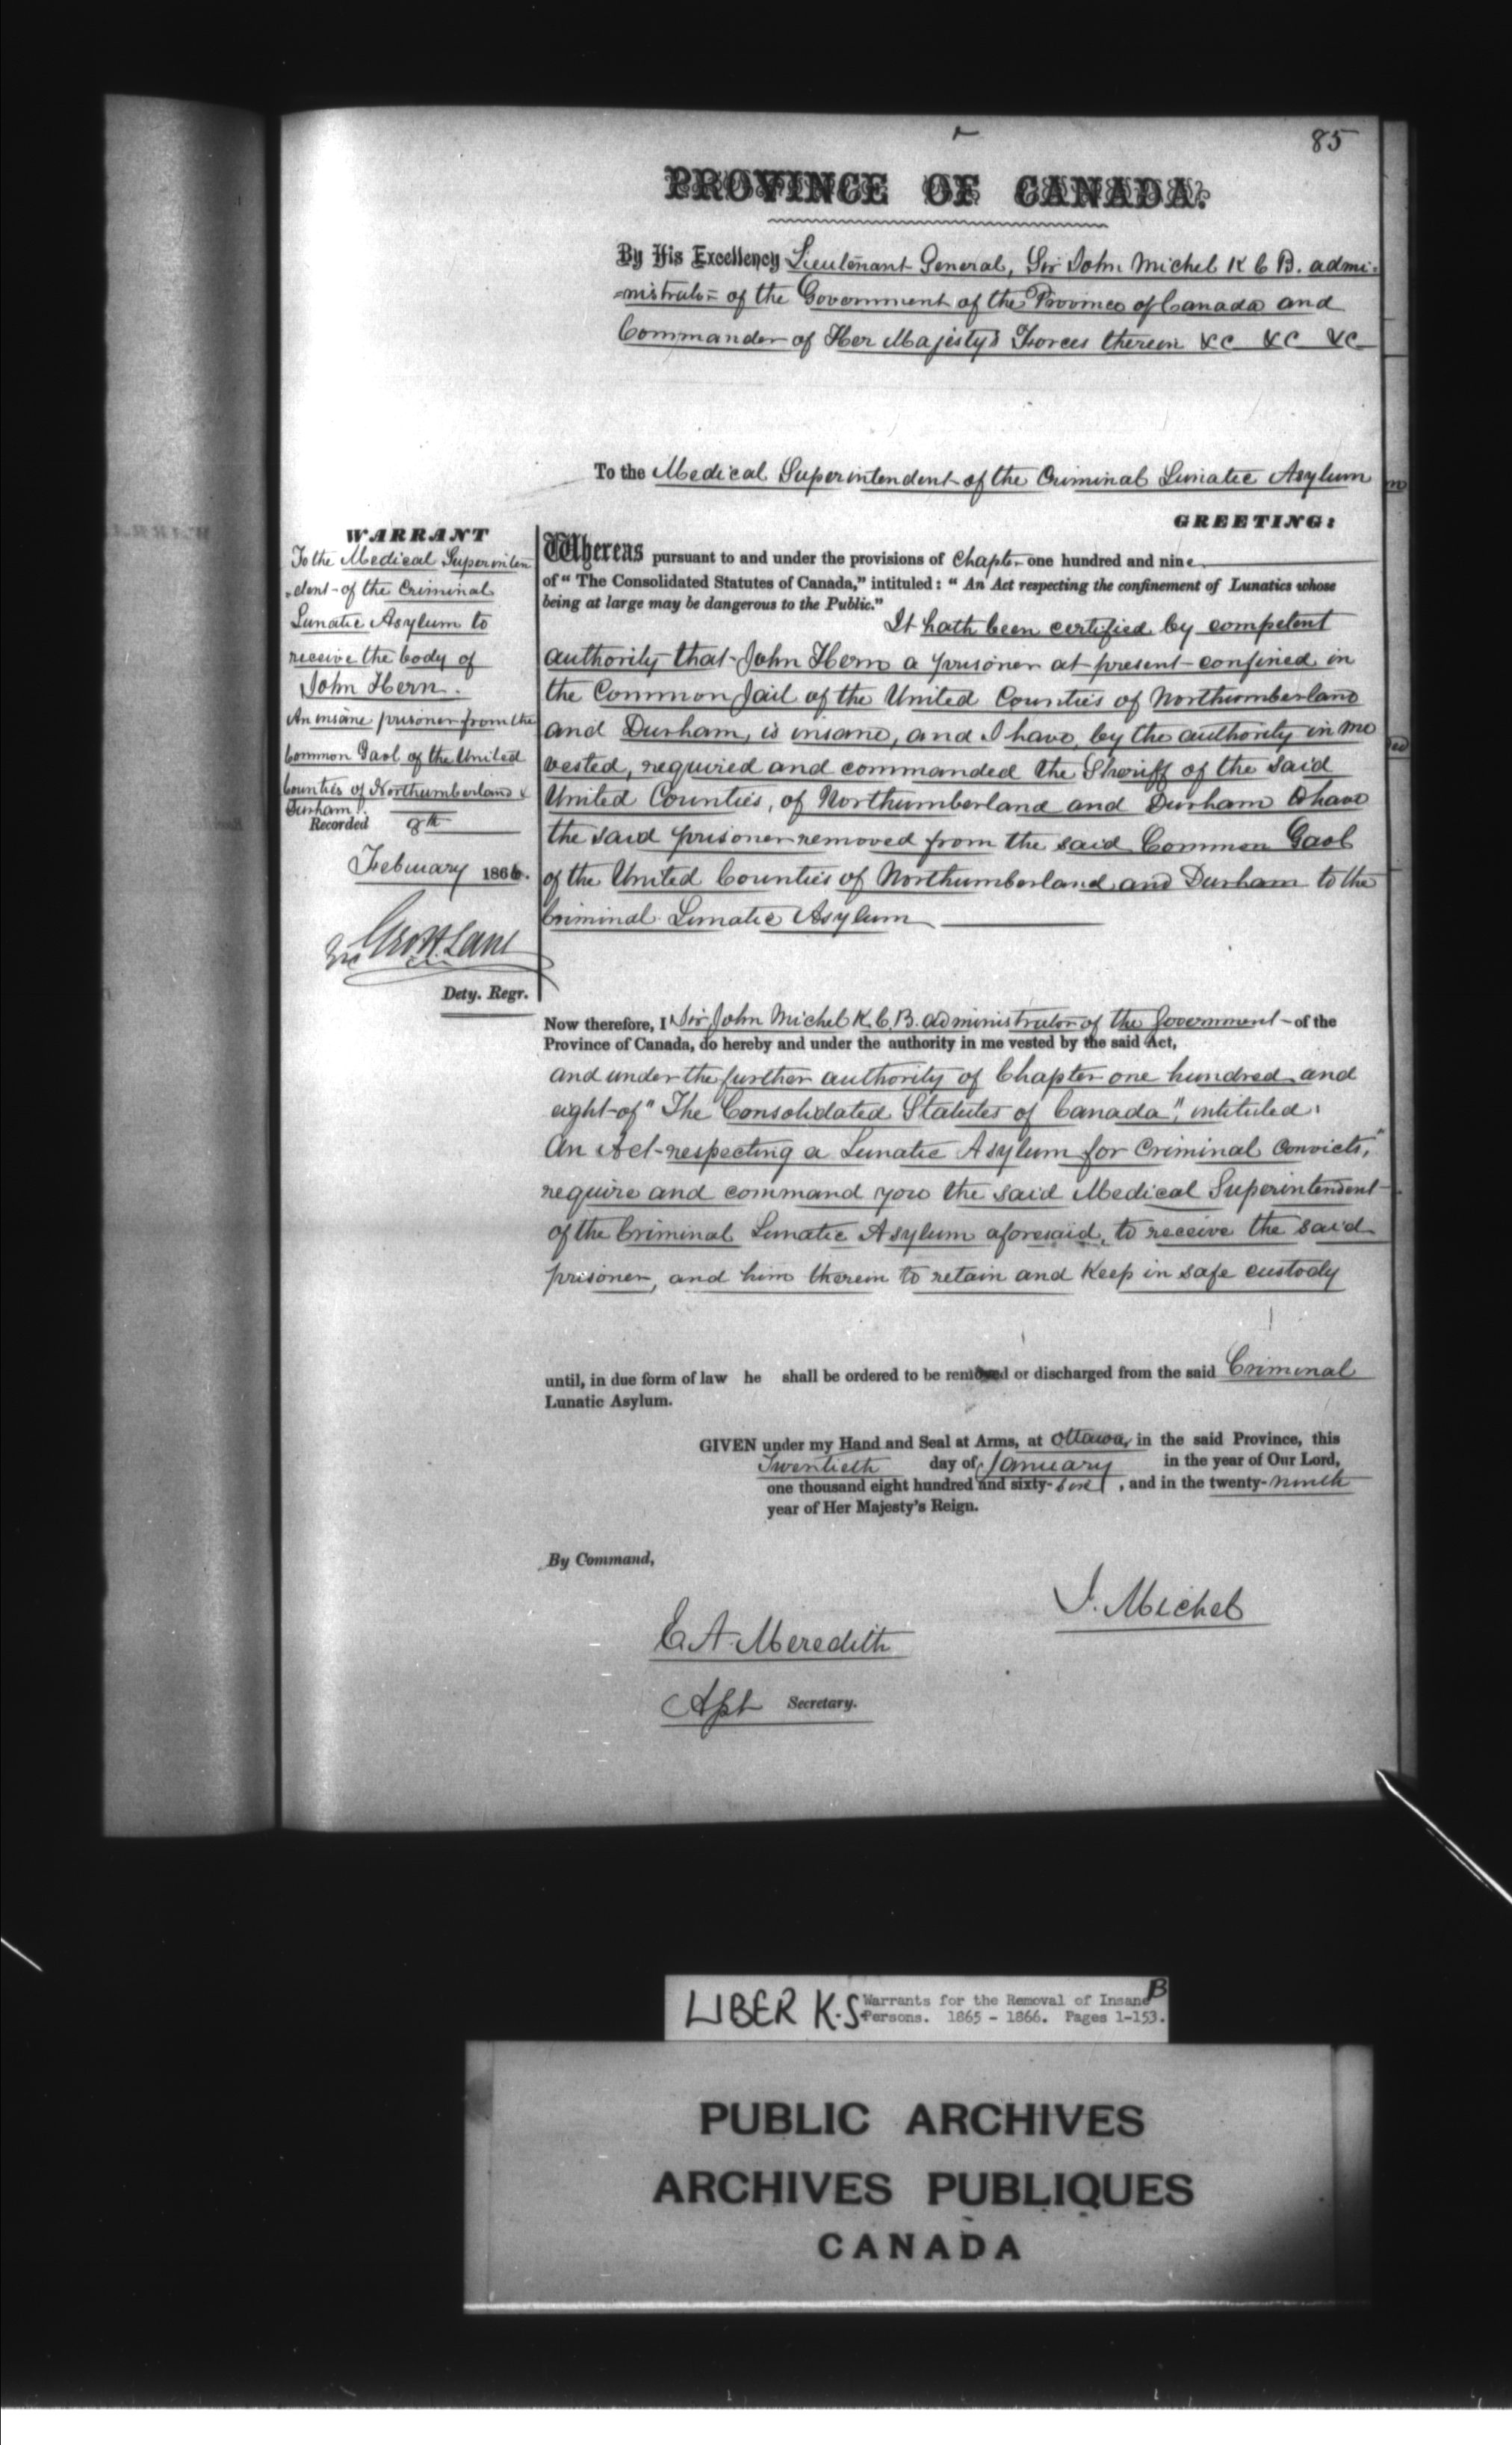 85
PROVINCE OF CANADA.
By His Excellency Lieutenant General, Sir John Michel K C B. admi-
=nistrator of the Government of the Province of Canada and
Commander of Her Majesty's Forces therein &c &c &c
To the Medical Superintendent of the Criminal Lunatic Asylum
GREETING:
WARRANT
To the Medical Superinten
=dent of the Criminal
Lunatic Asylum to
receive the body of
John Hern.
An insane prisoner from the
Common Gaol of the United
Counties of Northumberland &
Durham.
Recorded 8th
February 1866.
Geo H. Lane
Dety. Regr.
Whereas pursuant to and under the provisions of Chapter one hundred and nine
of "The Consolidated Statutes of Canada," intituled: "An Act respecting the confinement of Lunatics whose
being at large may be dangerous to the Public."
It hath been certified by competent
authority that John Hern a prisoner at present confined in
the Common Jail of the United Counties of Northumberland
and Durham, is insane, and I have, by the authority in me
vested, required and commanded the Sheriff of the said
United Counties, of Northumberland and Durham to have
the said prisoner removed from the said Common Gaol
of the United Counties of Northumberland and Durham to the
Criminal Lunatic Asylum
Now therefore, I Sir John Michel K.C.B. administrator of the Government of the
Province of Canada, do hereby and under the authority in me vested by the said Act,
and under the further authority of Chapter one hundred and
eight of "The Consolidated Statutes of Canada", intituled:
An Act respecting a Lunatic Asylum for Criminal Convicts,"
require and command you the said Medical Superintendent
of the Criminal Lunatic Asylum aforesaid, to receive the said
prisoner, and him therein to retain and keep in safe custody
until, in due form of law he shall be ordered to be removed or discharged from the said Criminal
Lunatic Asylum.
GIVEN under my Hand and Seal at Arms, at Ottawa, in the said Province, this
Twentieth day of January in the year of Our Lord,
one thousand eight hundred and sixty-six, and in the twenty-ninth
year of Her Majesty's Reign.
By Command,
J. Michel
E. A. Meredith
Asst Secretary.
LIBER K.S. Warrants for the Removal of Insane B
Persons. 1865 - 1866. Pages 1-153.
PUBLIC ARCHIVES
ARCHIVES PUBLIQUES
CANADA